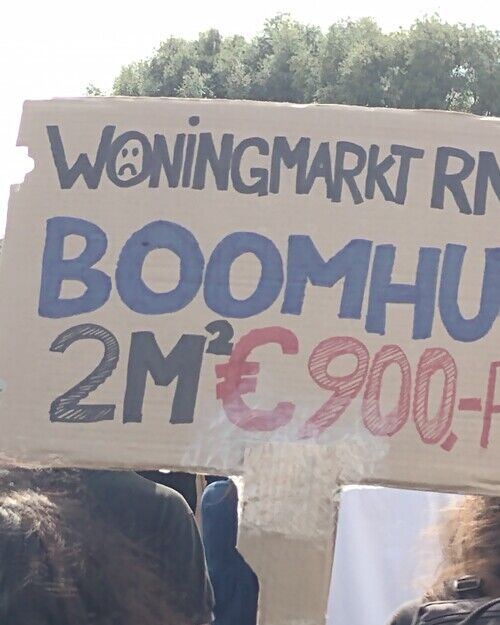 WONiNGMARKT RN
BOOMHU
2M² €900,-P